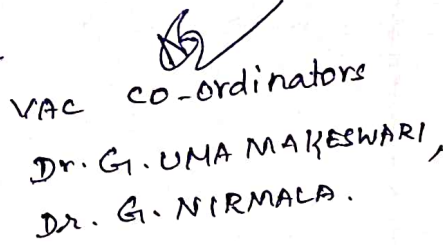 VAC co-ordinators
Dr. G. UMA MAKESWARI,
Dr. G. NIRMALA.